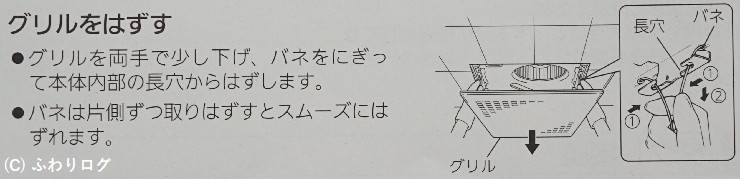 グリルをはずす
●グリルを両手で少し下げ、バネをにぎっ
て本体内部の長穴からはずします。
●バネは片側ずつ取りはずすとスムーズには
ずれます。
グリル
長穴
バネ
①
②
①
(C) ふわりログ